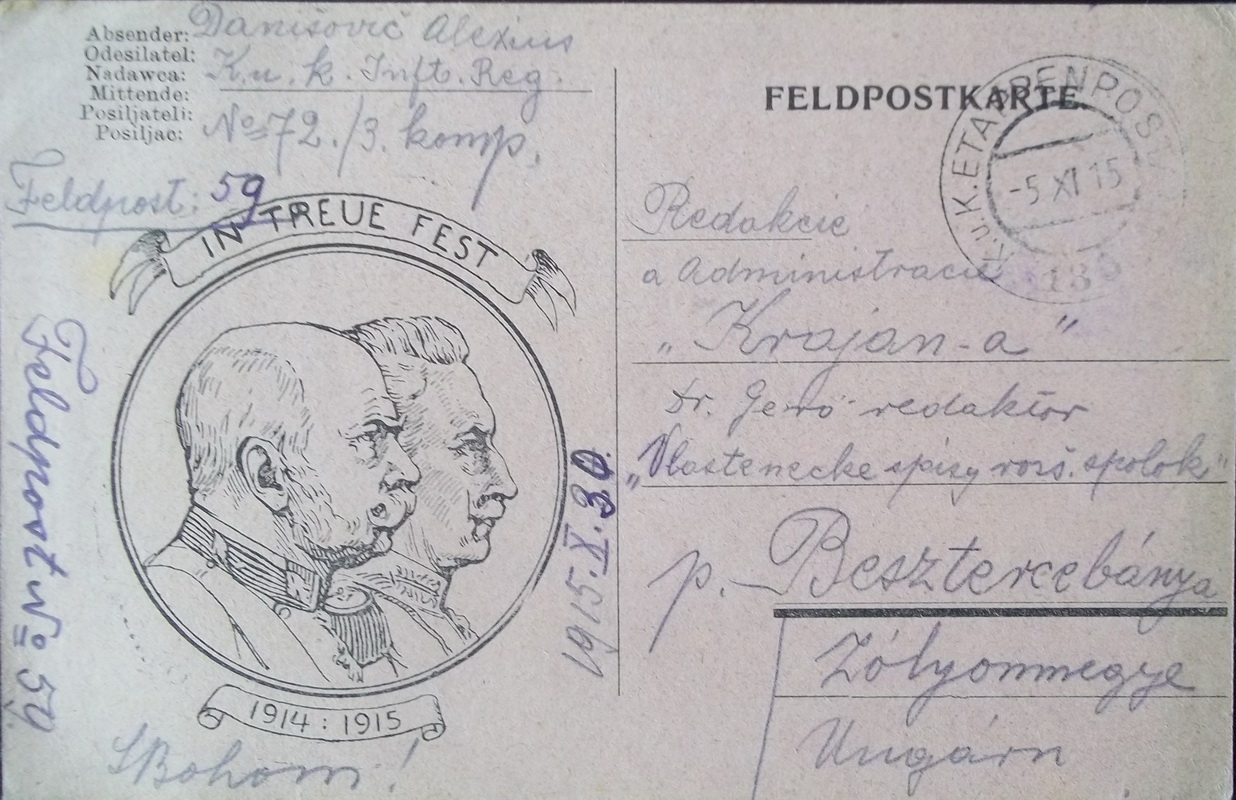 Absender: Danišovič Alexius
Odesilatel: K. u. k. Inft. Reg.
Nadawca:
Mittende: No 72./3. komp.
Posiljateli:
Posiljac:
Feldpost: 59
IN TREUE FEST
1914 : 1915
Feldpost No 59
1915. X. 30.
S Bohom!
FELDPOSTKARTE.
K.u.K. ETAPPENPOST
-5 XI 15
Redakcie
a administracie
„Krajan-a"
Dr. Gerö redaktor
„Vlastenecke spisy rozš. spolok"
p. Besztercebánya
Zólyommegye
Ungárn